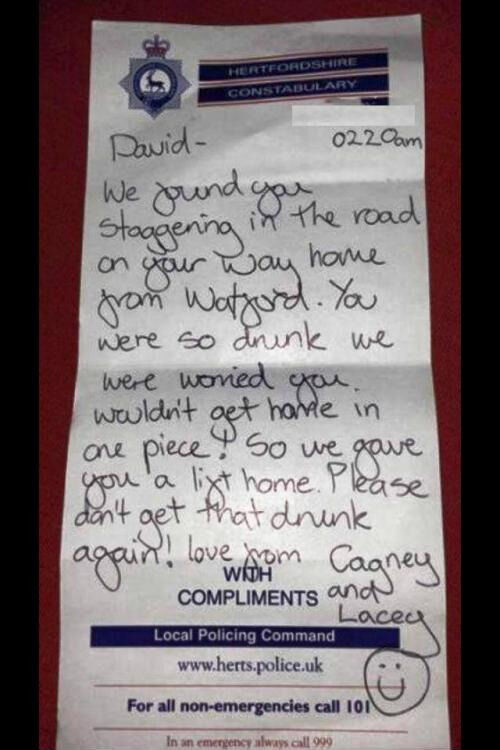 HERTFORDSHIRE
CONSTABULARY
David-
0220am
We found you
staggering in the road
on your way home
from Watford. You
were so drunk we
were worried you
wouldn't get home in
one piece! So we gave
you a lift home. Please
don't get that drunk
again! love from Cagney
and
Lacey
WITH
COMPLIMENTS
Local Policing Command
www.herts.police.uk
For all non-emergencies call 101
In an emergency always call 999